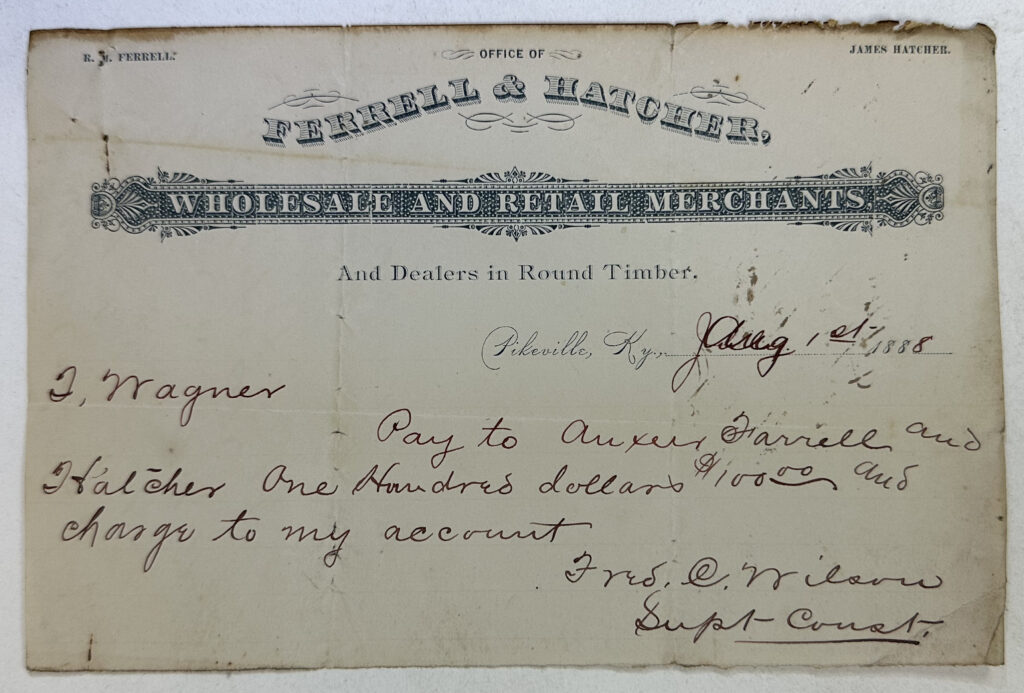 R. M. FERRELL.
OFFICE OF
JAMES HATCHER.
FERRELL & HATCHER,
WHOLESALE AND RETAIL MERCHANTS
And Dealers in Round Timber.
Pikeville, Ky., Aug. 1st 1888
T, Wagner
Pay to Auxier Farrell and
Hatcher One Hundred dollars $100.00 and
charge to my account
Fred. C. Wilson
Supt Const.